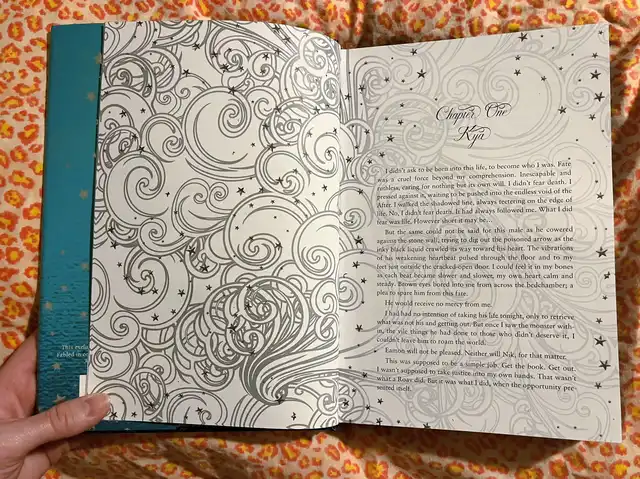 This
fabled
Chapter One
Kya
I didn't ask to be born into this life, to become who I was. Fate
was a cruel force beyond my comprehension. Inescapable and
ruthless, caring for nothing but its own will. I didn't fear death. I
pressed against it, waiting to be pushed into the endless void of the
After. I walked the shadowed line, always teetering on the edge of
life. No, I didn't fear death. It had always followed me. What I did
fear was life. However short it may be.
But the same could not be said for this male as he cowered
against the stone wall, trying to dig out the poisoned arrow as the
inky black liquid crawled its way toward his heart. The vibrations
of his weakening heartbeat pulsed through the floor and to my
feet just outside the cracked-open door. I could feel it in my bones
as each beat became slower and slower, my own heart calm and
steady. Brown eyes bored into me from across the bedchamber; a
plea to spare him from this fate.
He would receive no mercy from me.
I had had no intention of taking his life tonight, only to retrieve
what was not his and getting out. But once I saw the monster with-
in, the vile things he had done to those who didn't deserve it, I
couldn't leave him to roam the world.
will not be pleased. Neither will Nik, for that matter.
This was supposed to be a simple job. Get the book. Get out.
I wasn't supposed to take justice into my own hands. That wasn't
what a did. But it was what I did, when the opportunity pre-
sented itself.